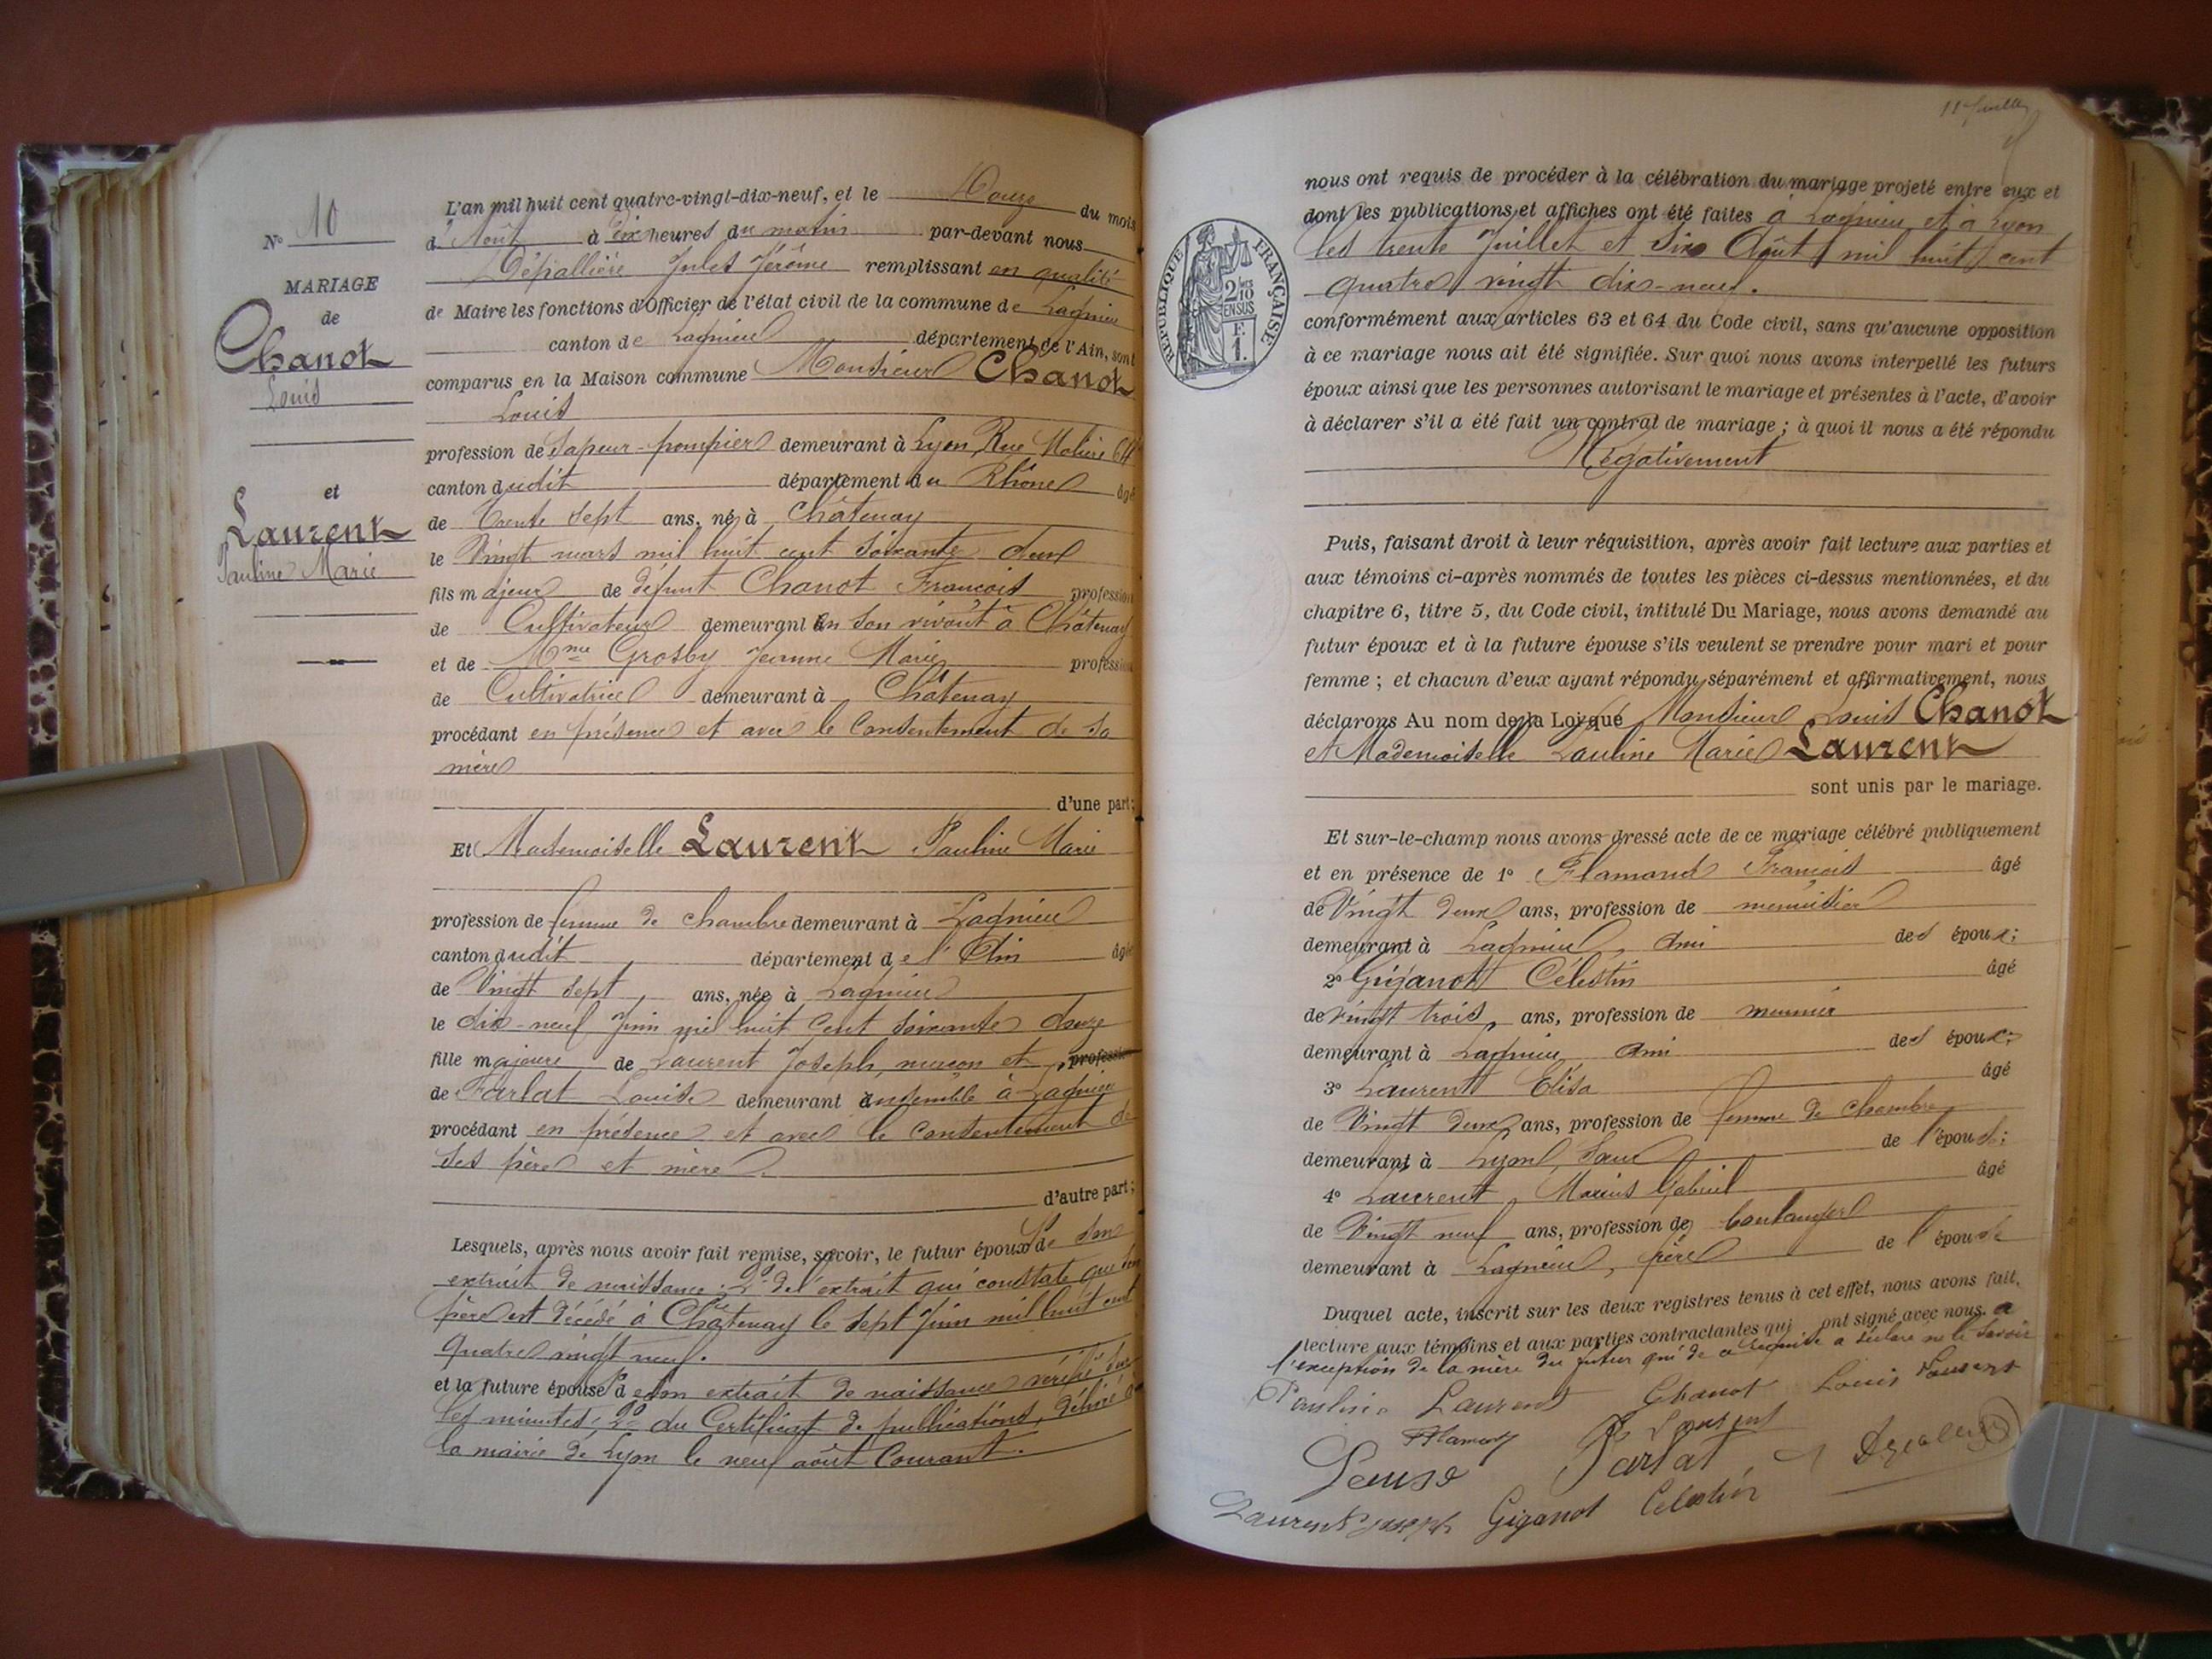 N° 10
MARIAGE
de
Chanot
Louis
et
Laurent
Pauline Marie
L'an mil huit cent quatre-vingt-dix-neuf, et le Douze du mois
d'Août à dix heures du matin par-devant nous
Dépallière Jules Jérôme remplissant en qualité
de Maire les fonctions d'Officier de l'état civil de la commune de Lagnieu
canton de Lagnieu département de l'Ain, sont
comparus en la Maison commune Monsieur Chanot
Louis
profession de Sapeur-pompier demeurant à Lyon, Rue Molière 64
canton dudit département du Rhône âgé
de Trente sept ans, né à Châtenay
le Vingt mars mil huit cent soixante deux
fils majeur de défunt Chanot François profession
de Cultivateur demeurant en son vivant à Châtenay
et de Mme Grosby Jeanne Marie profession
de Cultivatrice demeurant à Châtenay
procédant en présence et avec le Consentement de sa
mère
d'une part;
Et Mademoiselle Laurent Pauline Marie
profession de femme de chambre demeurant à Lagnieu
canton dudit département de l'Ain âgée
de Vingt sept ans, née à Lagnieu
le dix-neuf Juin mil huit Cent soixante douze
fille majeure de Laurent Joseph, maçon et profession
de Farlat Louise demeurant ensemble à Lagnieu
procédant en présence et avec le Consentement de
ses père et mère
d'autre part;
Lesquels, après nous avoir fait remise, savoir, le futur époux 1° de son
extrait de naissance; 2° de l'extrait qui constate que son
père est décédé à Châtenay le sept Juin mil huit cent
quatre vingt neuf.
et la future épouse 1° de son extrait de naissance vérifié sur
les minutes; 2° du Certificat de publications, délivré à
la mairie de Lyon le neuf août Courant.
11e feuillet
RÉPUBLIQUE FRANÇAISE
2/10 EN SUS
F. 1.
nous ont requis de procéder à la célébration du mariage projeté entre eux et
dont les publications et affiches ont été faites à Lagnieu et à Lyon
les trente Juillet et Six Août mil huit cent
quatre vingt dix-neuf.
conformément aux articles 63 et 64 du Code civil, sans qu'aucune opposition
à ce mariage nous ait été signifiée. Sur quoi nous avons interpellé les futurs
époux ainsi que les personnes autorisant le mariage et présentes à l'acte, d'avoir
à déclarer s'il a été fait un contrat de mariage; à quoi il nous a été répondu
Négativement
Puis, faisant droit à leur réquisition, après avoir fait lecture aux parties et
aux témoins ci-après nommés de toutes les pièces ci-dessus mentionnées, et du
chapitre 6, titre 5, du Code civil, intitulé Du Mariage, nous avons demandé au
futur époux et à la future épouse s'ils veulent se prendre pour mari et pour
femme; et chacun d'eux ayant répondu séparément et affirmativement, nous
déclarons Au nom de la Loi que Monsieur Louis Chanot
et Mademoiselle Pauline Marie Laurent
sont unis par le mariage.
Et sur-le-champ nous avons dressé acte de ce mariage célébré publiquement
et en présence de 1° Flamand François âgé
de Vingt deux ans, profession de menuisier
demeurant à Lagnieu, ami des époux;
2° Giganot Célestin âgé
de Vingt trois ans, profession de meunier
demeurant à Lagnieu, ami des époux;
3° Laurent Elisa âgé
de Vingt deux ans, profession de femme de chambre
demeurant à Lyon, Sœur de l'épouse;
4° Laurent Marius Gabriel âgé
de Vingt neuf ans, profession de boulanger
demeurant à Lagnieu, frère de l'épouse
Duquel acte, inscrit sur les deux registres tenus à cet effet, nous avons fait
lecture aux témoins et aux parties contractantes qui ont signé avec nous. à
l'exception de la mère du futur qui de ce requise a déclaré ne le savoir
Pauline Laurent Chanot Louis
Flamand Laurent
Louise Farlat
Laurent Joseph Giganot Celestin